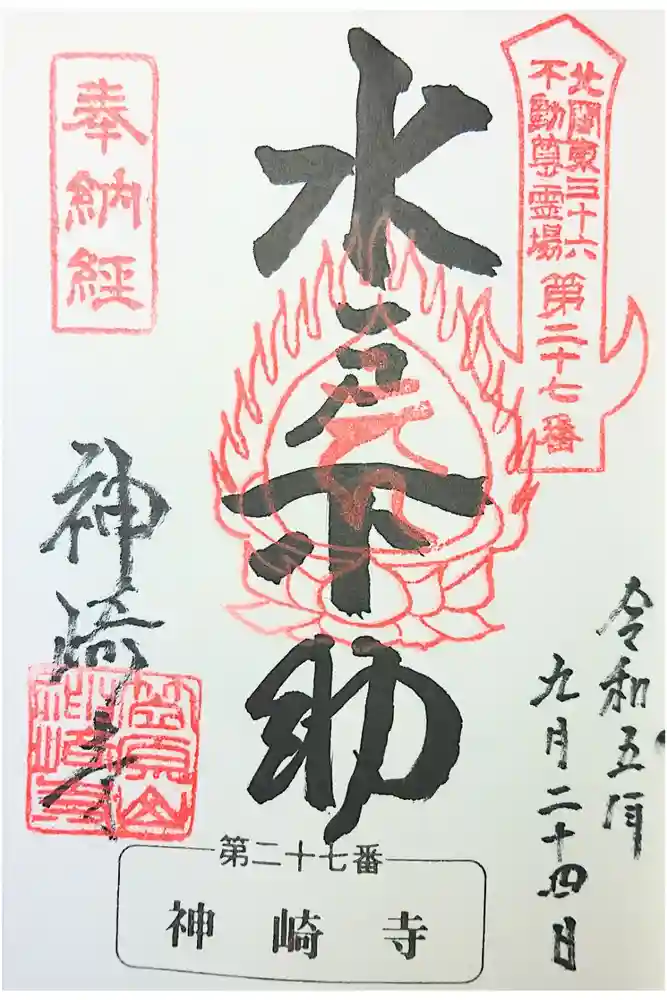 北関東三十六
不動尊霊場
第二十七番
奉納経
水戸不動
令和五年
九月二十四日
神崎寺
第二十七番
神崎寺